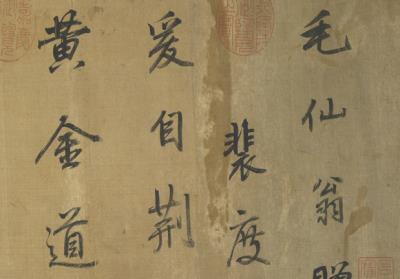 毛仙翁贈
裴度
爰自荆
黃金道